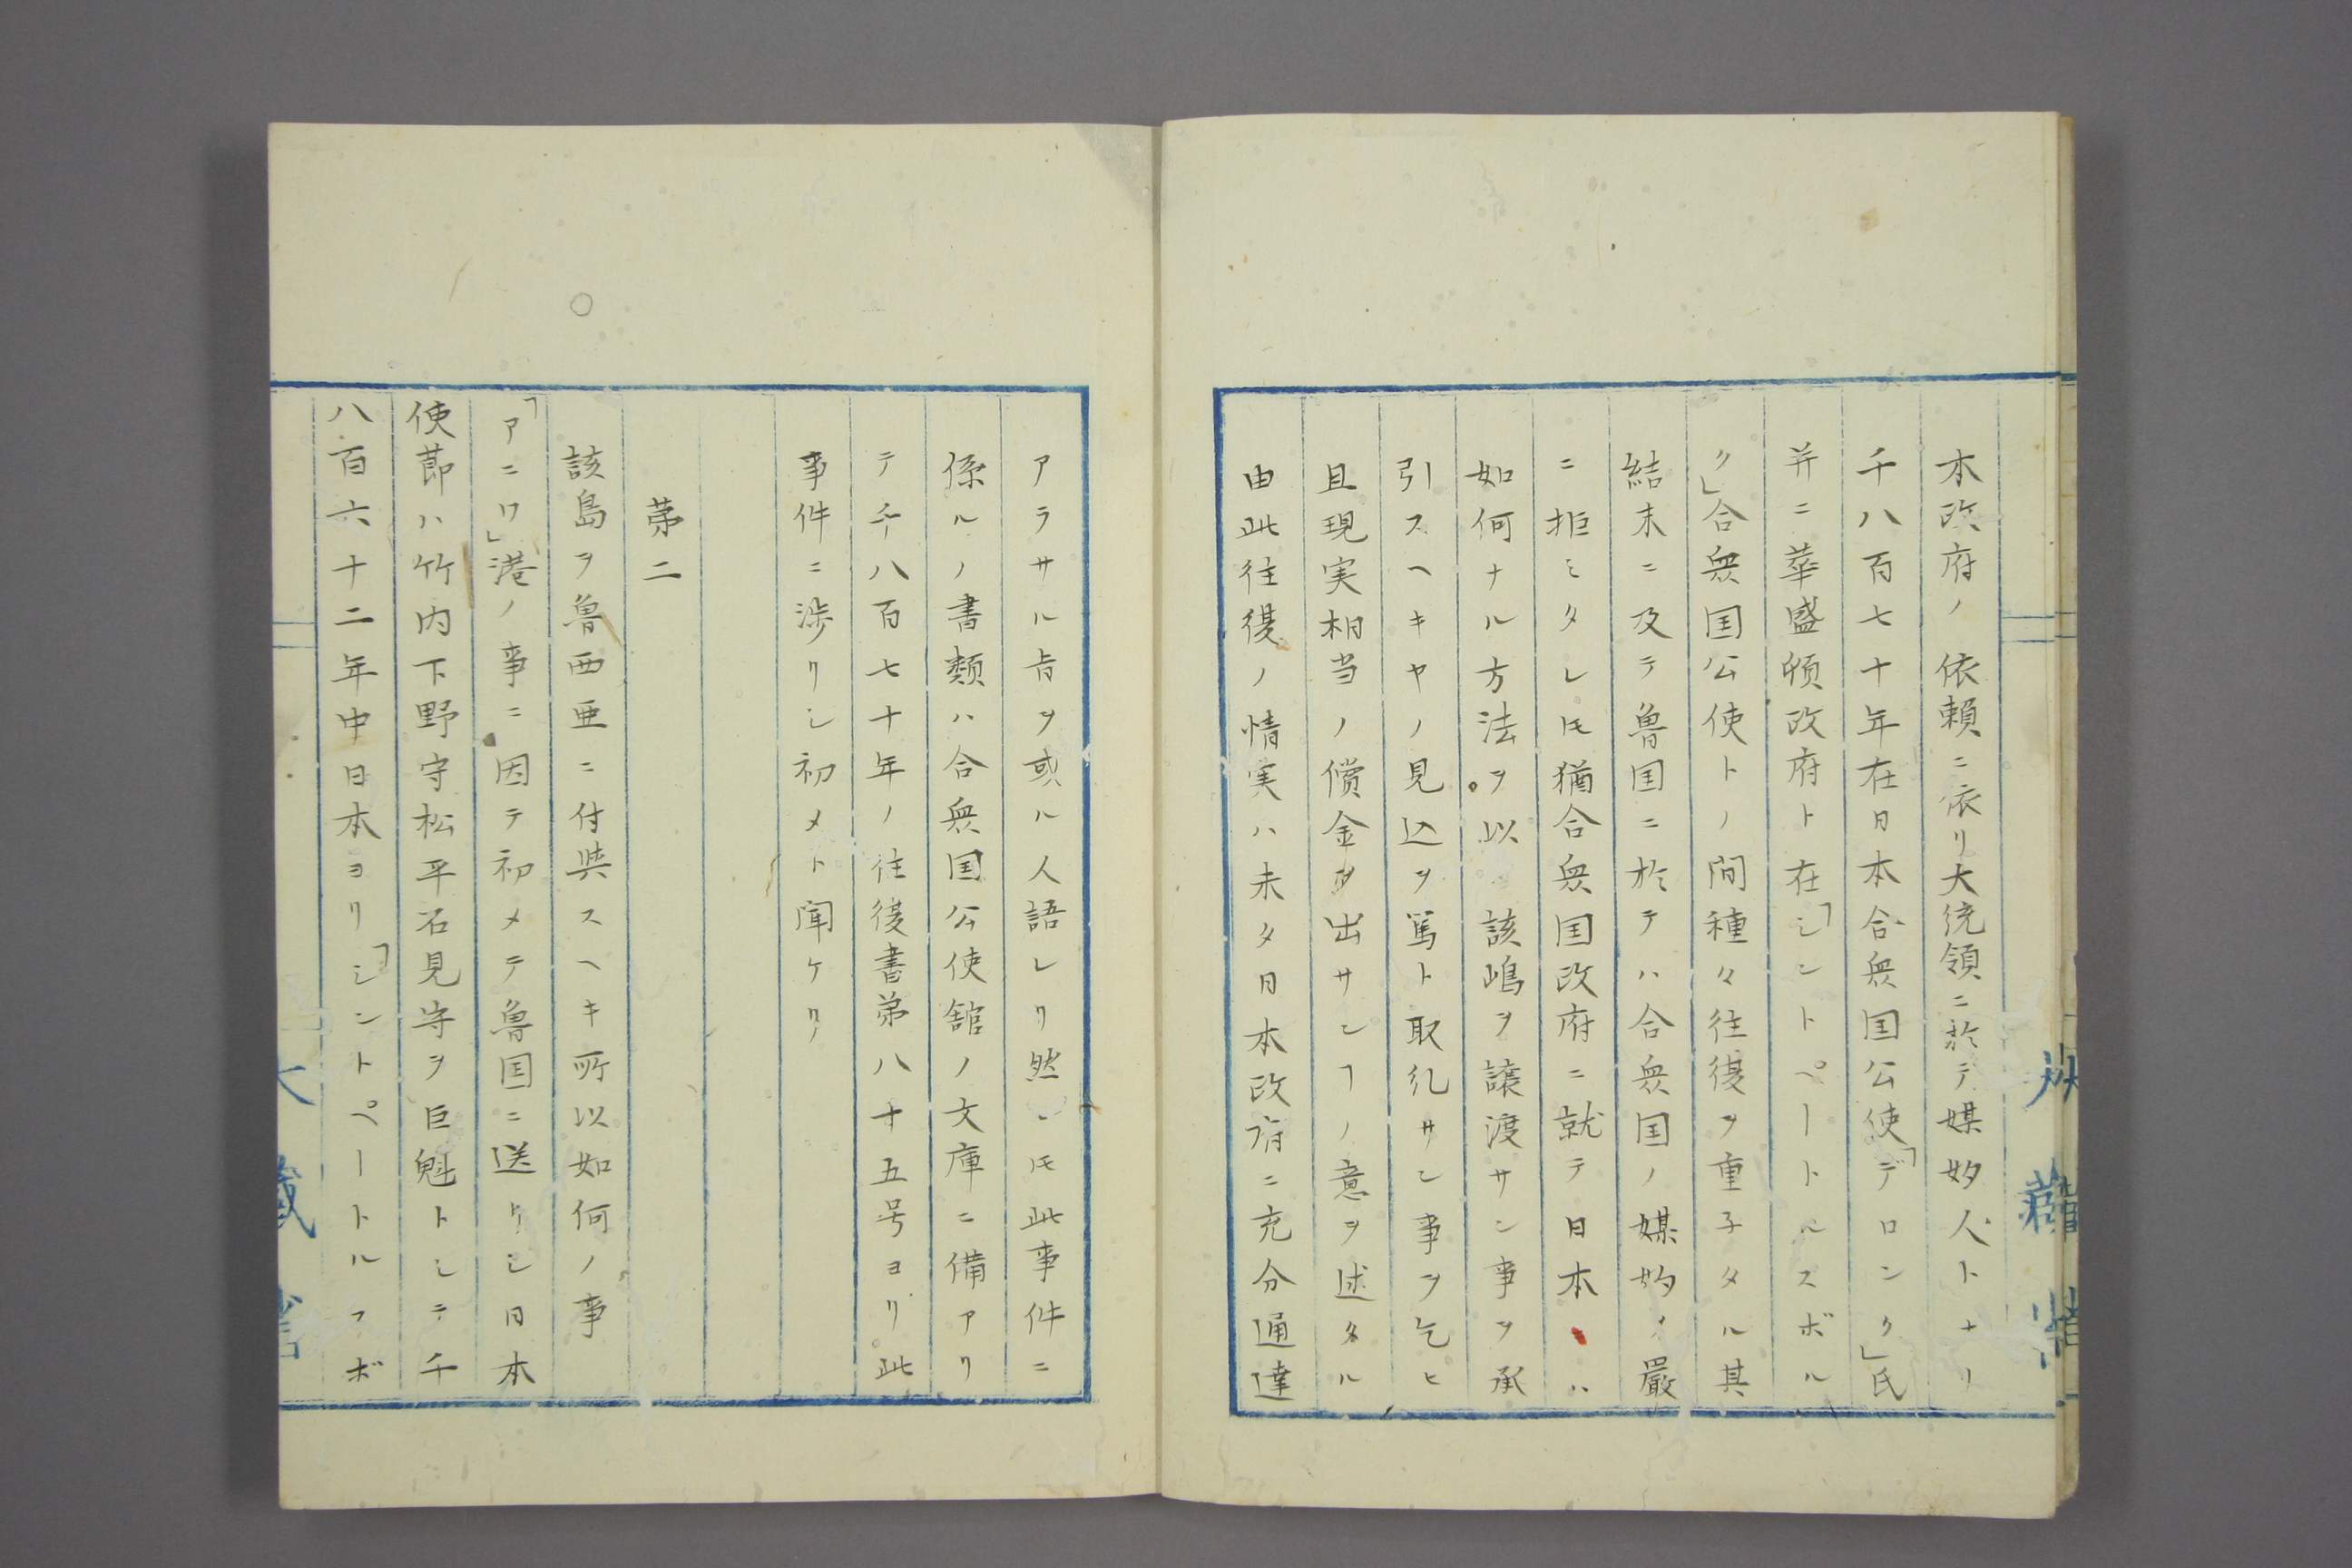 本政府ノ依頼ニ依リ大統領ニ於テ媒妁人トナリ
千八百七十年在日本合衆国公使「デロンク」氏
并ニ華盛頓政府ト在「シントペートルスボル
ク」合衆国公使トノ間種々往復ヲ重子タル其
結末ニ及テ魯国ニ於テハ合衆国ノ媒妁ヲ嚴
ニ拒ミタレ𪜈猶合衆国政府ニ就テ日本ハ
如何ナル方法ヲ以該嶋ヲ譲渡サン事ヲ承
引スヘキヤノ見込ヲ篤ト取糺サン事ヲ乞ヒ
且現実相当ノ償金ヲ出サンヿノ意ヲ述タル
由此往復ノ情実ハ未タ日本政府ニ充分通達
アラサル旨ヲ或ル人語レリ然レ𪜈此事件ニ
係ルノ書類ハ合衆国公使舘ノ文庫ニ備アリ
テ千八百七十年ノ往復書第八十五号ヨリ此
事件ニ渉リシ初メト聞ケリ
第二
該島ヲ魯西亜ニ付與スヘキ所以如何ノ事
「アニワ」港ノ事ニ因テ初メテ魯国ニ送リシ日本
使節ハ竹内下野守松平石見守ヲ巨魁トシテ千
八百六十二年中日本ヨリ「シントペートルフボ
大藏省